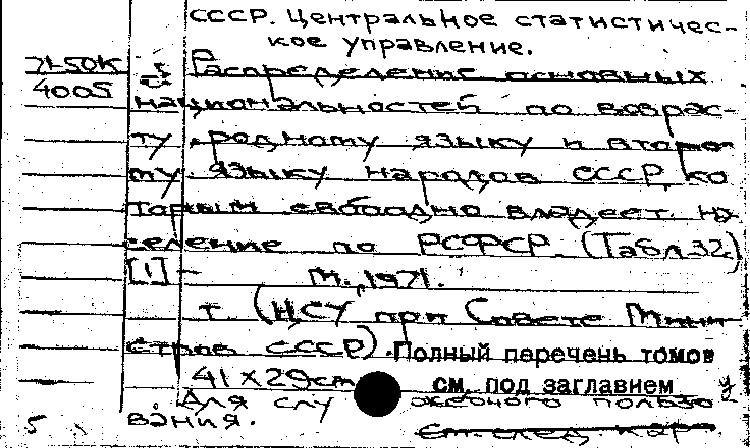 СССР. Центральное статистичес-
кое управление.
Распределение основных
4005
национальностей по возрас-
ту, родному языку и второ-
му языку народов СССР, ко
торым свободно владеет на
селение по РСФСР. (Табл.32)
[1] - М., 1971.
т. (ЦСУ при Совете Мини
стров СССР). Полный перечень томов
41 x 29cm см. под заглавием
Для слу жебного пользо
5 вания.
См. след. кар.